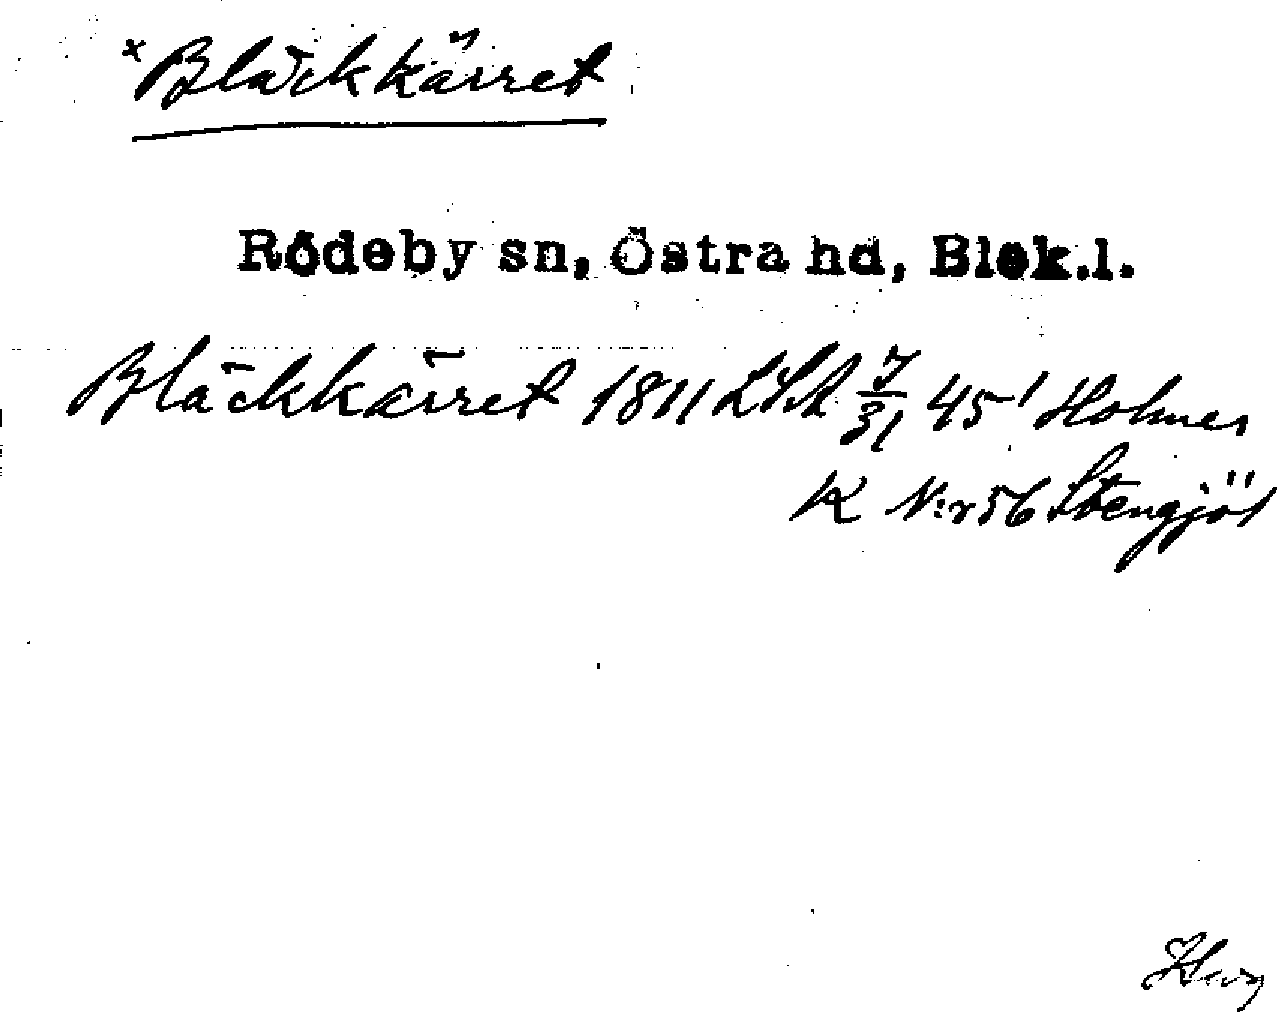 × Bläckkärret
Rödeby sn, Östra hd, Blek.l.
Bläckkärret 1811 LSA J/31 45' Holmen
K N:r 56 Stengjöl